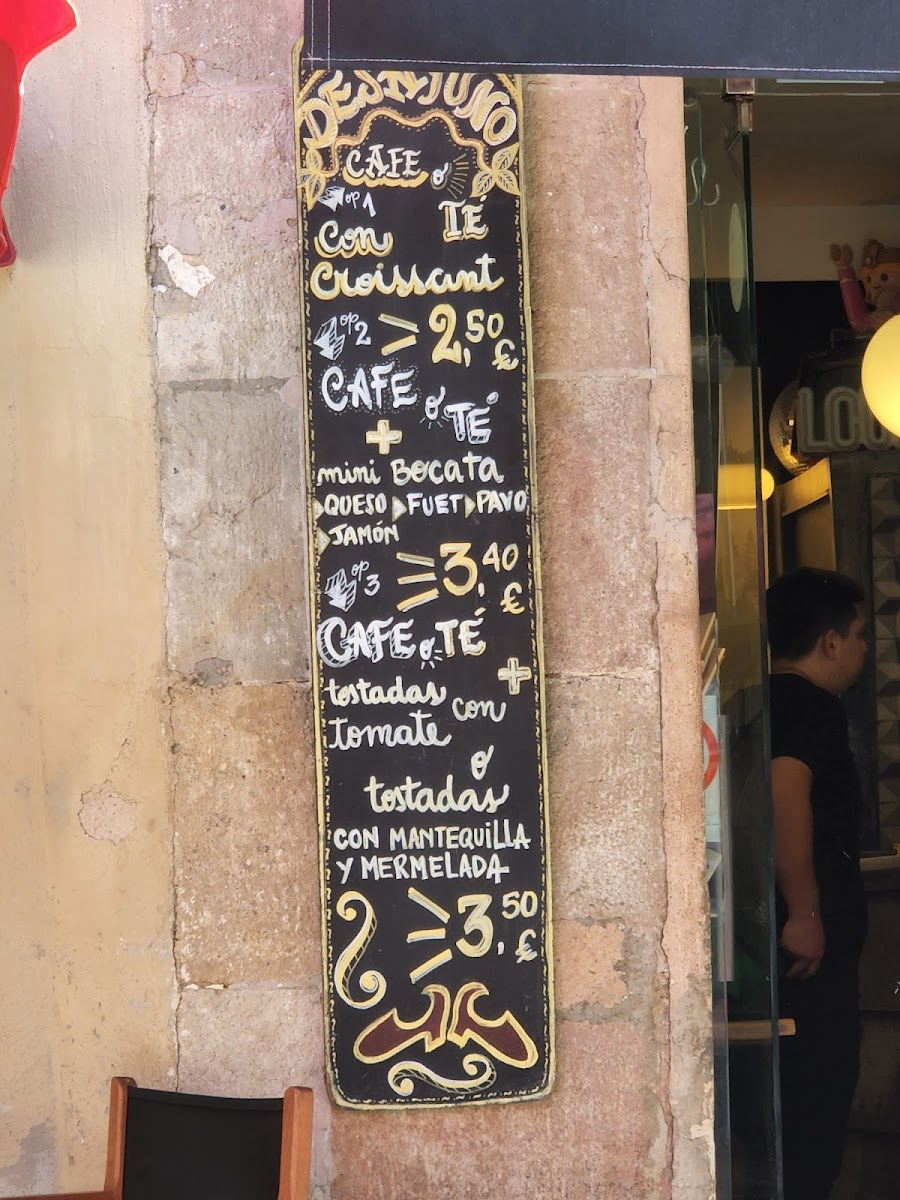 DESAYUNO
CAFE ó
TÉ
op 1
Con
Croissant
2,50 €
op 2
CAFE ó TÉ
+
mini BOCATA
QUESO FUET PAVO
JAMÓN
3,40 €
op 3
CAFE ó TÉ
+
tostadas con
tomate
ó
tostadas
CON MANTEQUILLA
Y MERMELADA
3,50 €